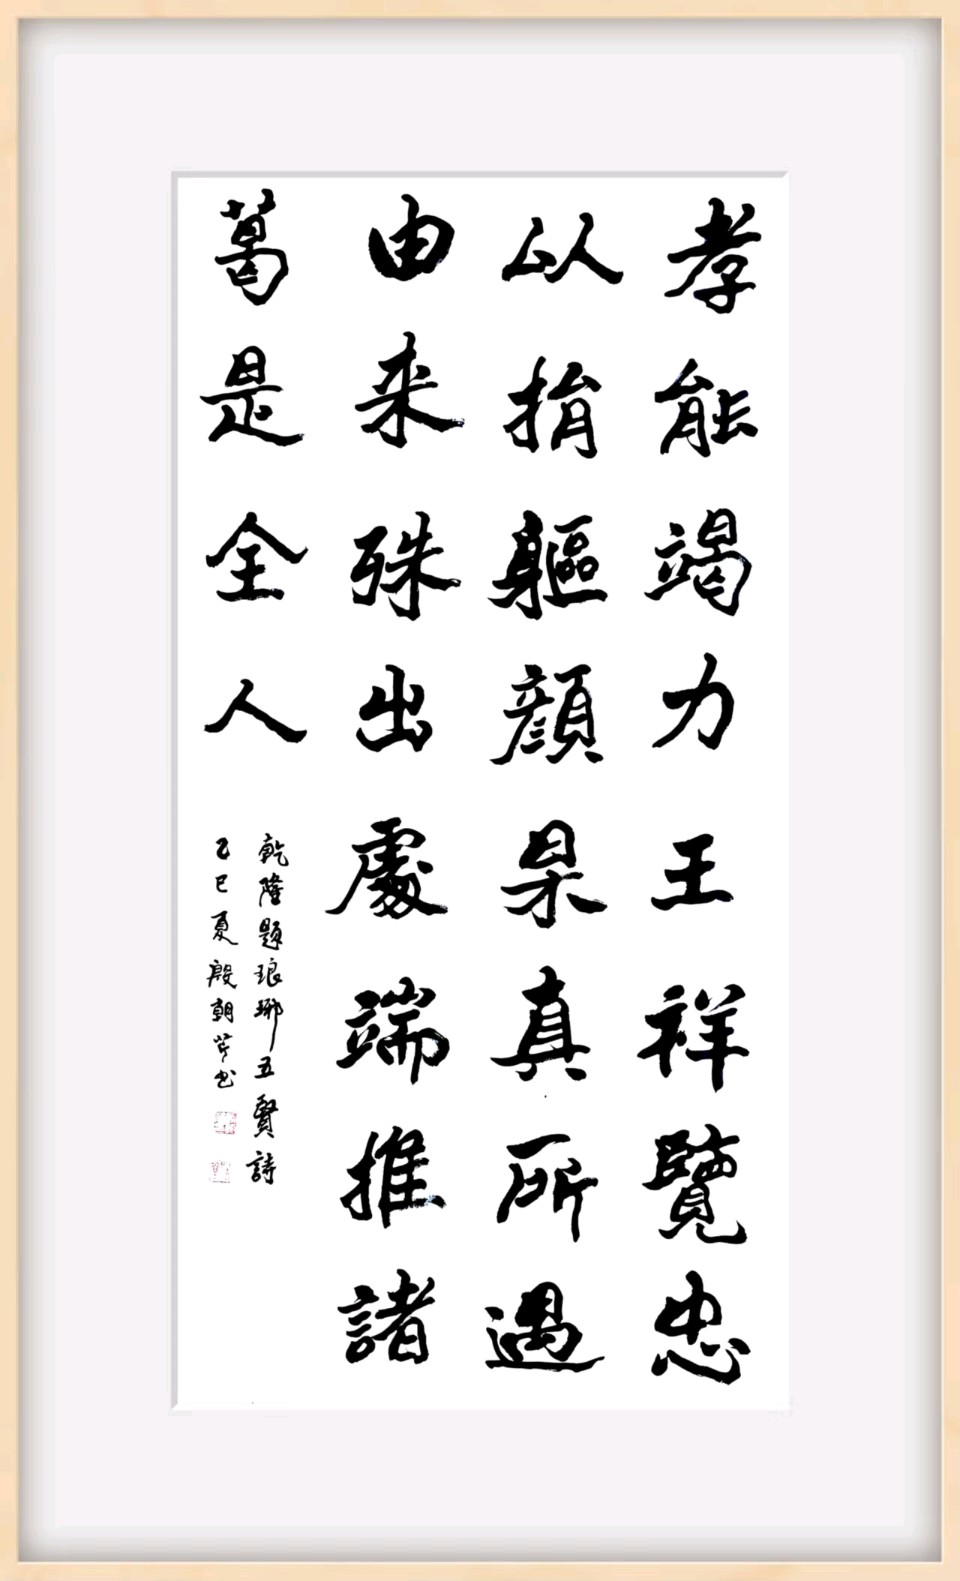 孝能竭力王祥覽忠
以捐軀顏杲真所遇
由來殊出處端推諸
葛是全人
乾隆題琅琊五賢詩
乙巳夏殷朝芹书